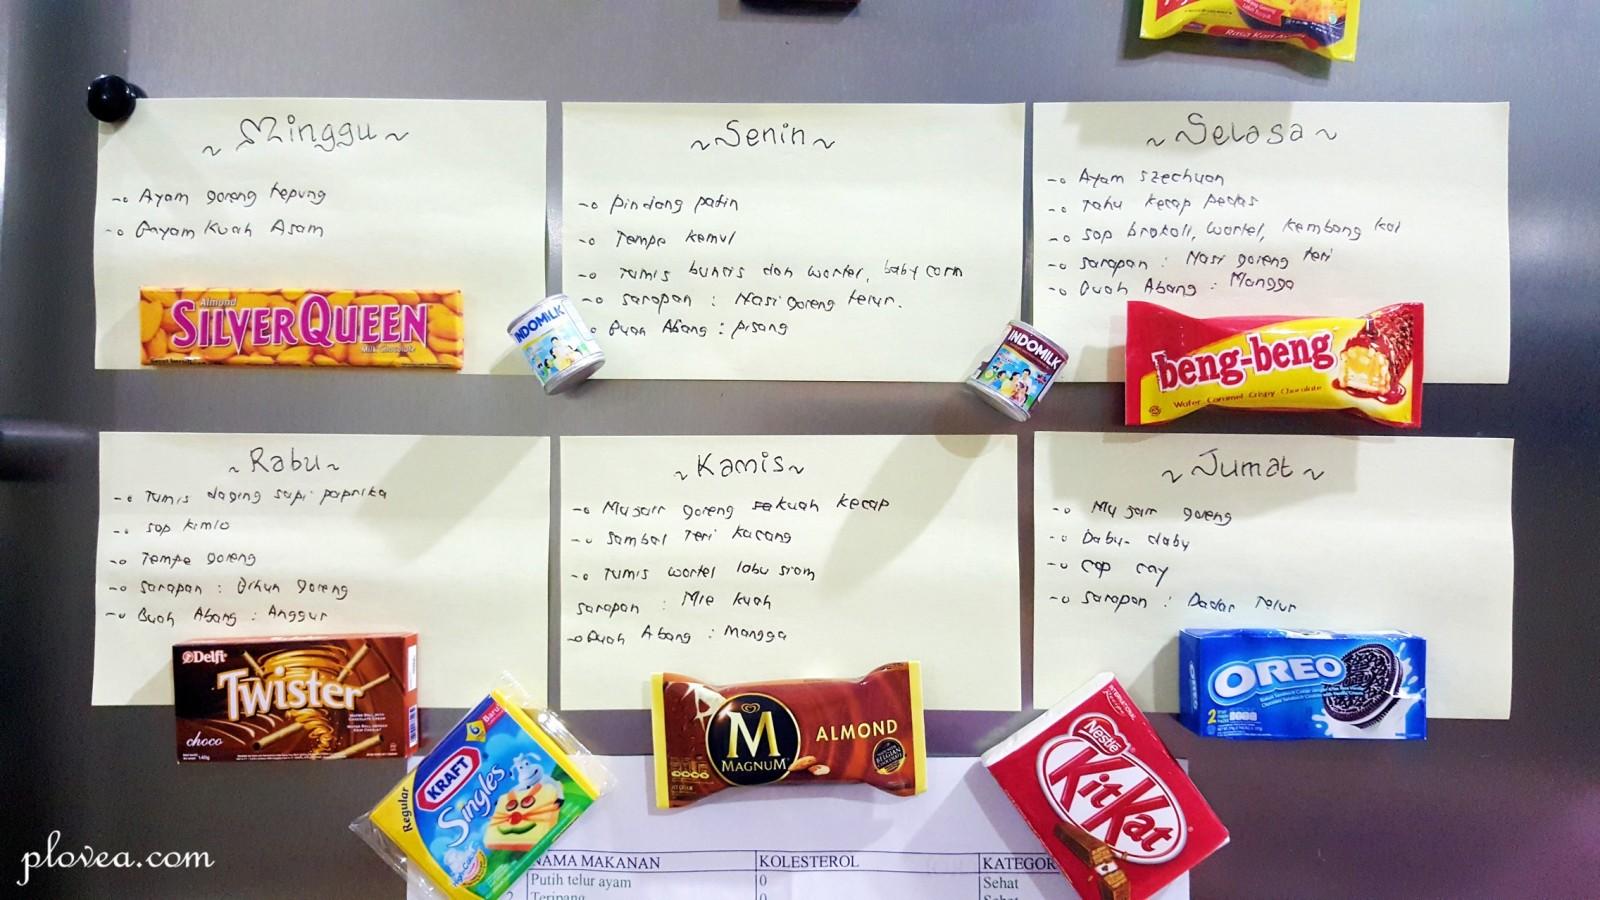 Rasa Kari Ayam
~ Minggu ~
Ayam goreng tepung
Bayam Kuah Asam
Almond
SILVER QUEEN
Milk Chocolate
~ Senin ~
Pindang patin
Tempe kemul
Tumis buncis dan wortel, baby corn
Sarapan : Nasi goreng telur.
Buah Abang : pisang
INDOMILK
~ Selasa ~
Ayam szechuan
Tahu kecap pedas
Sop brokoli, wortel, kembang kol
Sarapan : Nasi goreng teri
Buah Abang : Mangga
INDOMILK
beng-beng
Wafer Caramel Crispy Chocolate
~ Rabu ~
Tumis daging sapi paprika
Sop kimlo
Tempe goreng
Sarapan : Bihun goreng
Buah Abang : Anggur
Delfi
Twister
choco
~ Kamis ~
Mujair goreng sekuah kecap
Sambal Teri kacang
Tumis wortel labu siam
Sarapan : Mie kuah
Buah Abang : Mangga
~ Jumat ~
Mujair goreng
Dabu-dabu
Cap cay
Sarapan : Dadar Telur
OREO
2
Regular
KRAFT
Singles
Baru
M
MAGNUM
ALMOND
BELGIAN
Nestle
KitKat
NAMA MAKANAN KOLESTEROL KATEGOR
Putih telur ayam 0 Sehat
2 Teripang 0 Sehat
plovea.com